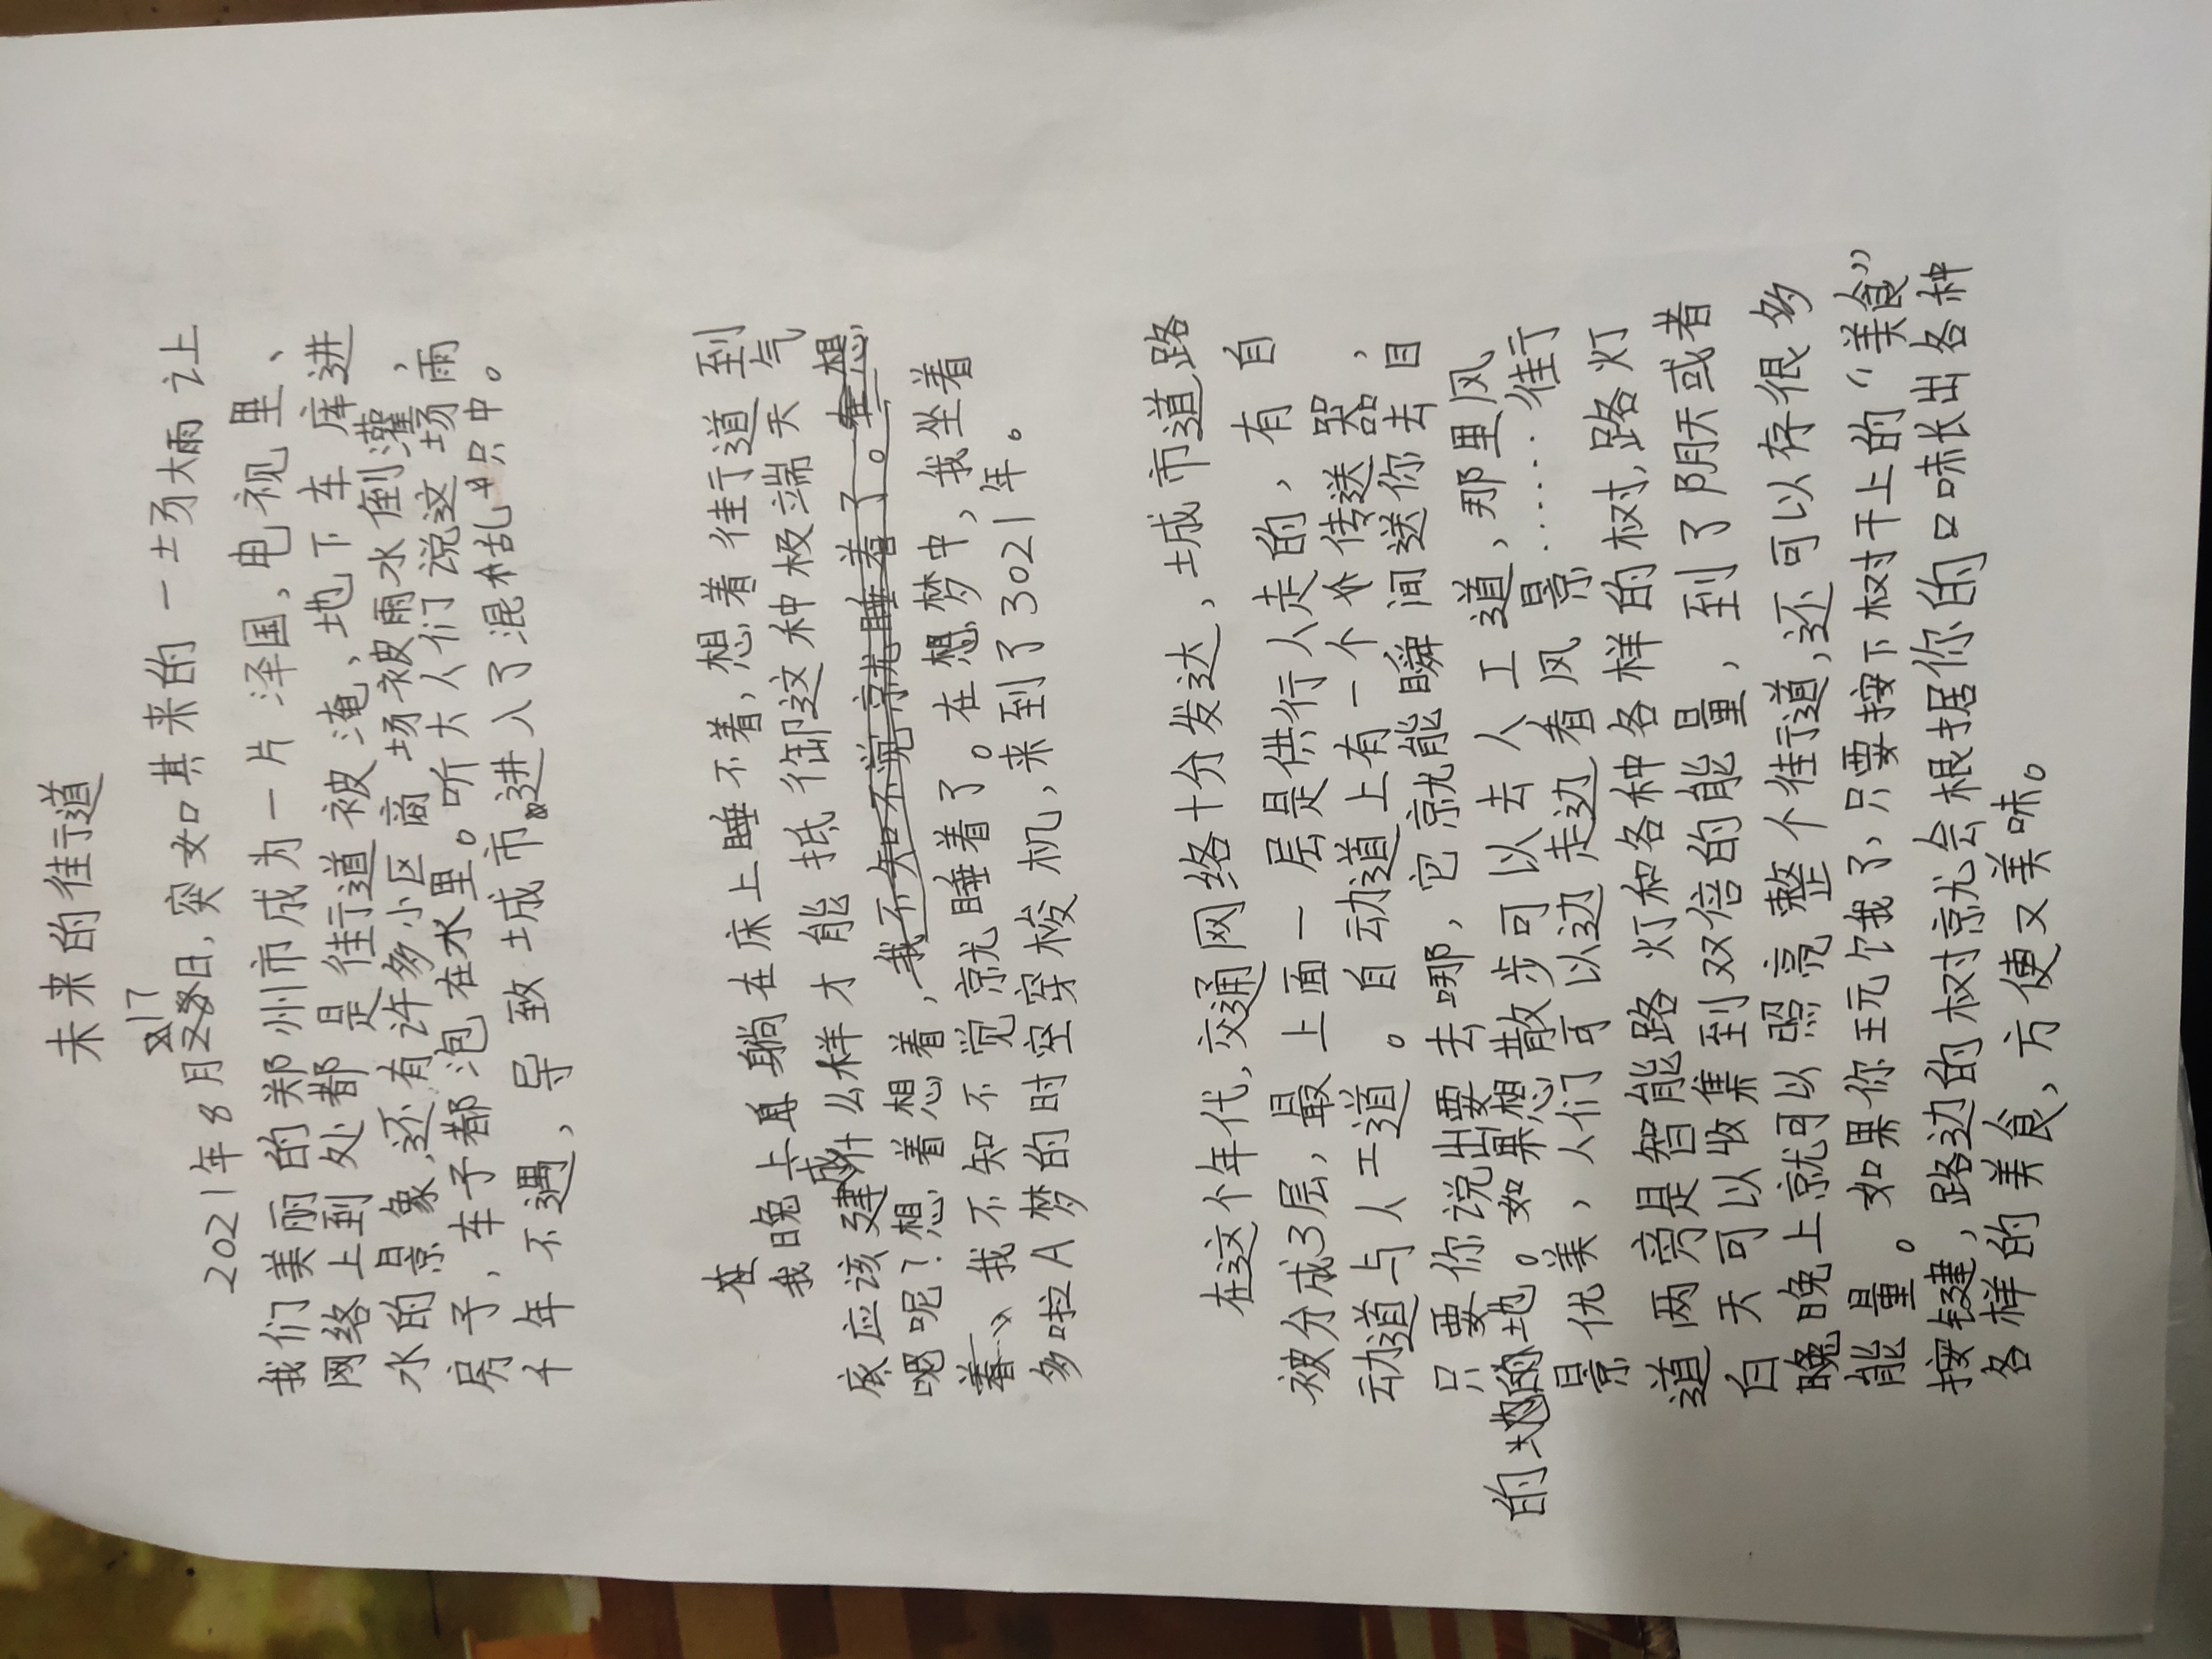 未来的佳行道
17
2021年8月日,突如其来的一场大雨让
我们美丽的郑州市成为一片泽国,电视里、
网络上到处都是佳行道被淹、地下车库进
水的景象,还有许多小区商场被雨水倒灌,
房子,车子都泡在水里。听大人们说这场雨
千年不遇,导致城市进入了混乱只中。
在晚上耳
我躺在床上睡不着,想着佳行道到
底应该建什么样才能抵御这种极端天气
呢?想着想着,我不知不觉就睡着了。在想
着、我不知不觉就睡着了。在想梦中,我坐着
多啦A梦的时空穿梭机,来到了3021年。
在这个年代,交通网络十分发达,城市道路
被分成3层,最上面一层是供行人走的,有自
动道与人工道。自动道上有一个传送器,
只要你说出要去哪,它就能瞬间送你去目
的地。如果想散步可以去人工道,那里风
景优美,人们可以边走边看风景……佳行
道两旁是智能路灯和各种各样的树,路灯
白天可以收集到双倍的能量,到了阴天或者
晚晚上就可以照亮整个佳行道,还可以存很多
能量。如果你玩饿了,只要按下树干上的“美食”
按键,路边的树就会根据你的口味长出各种
各样的美食,方便又美味。